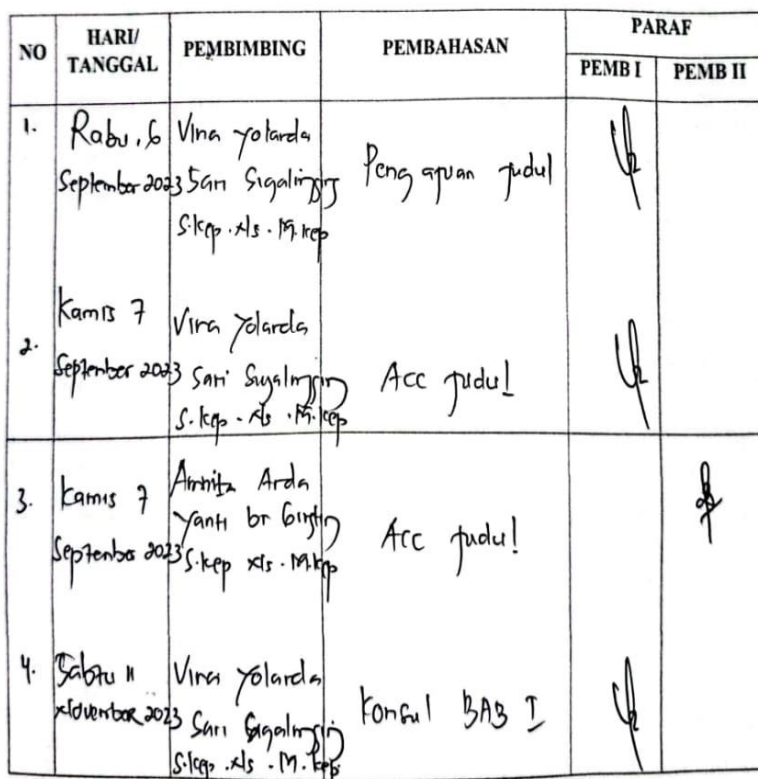 NO
HARI/
TANGGAL
PEMBIMBING
PEMBAHASAN
PARAF
PEMB I
PEMB II
1.
Rabu, 6
September 2023
Vina Yolarda
Sari Sigalingging
S.kep. Ns. M.kep
Pengajuan judul
2.
Kamis 7
September 2023
Vira Yolarda
Sari Sigalingging
S.kep. Ns. M.kep
Acc judul
3.
Kamis 7
September 2023
Amnita Arda
Yanti br Ginting
S.kep Ns. M.kep
Acc judul
4.
Sabtu 11
November 2023
Vira Yolarda
Sari Sigalingging
S.kep. Ns. M.kep.
Konsul BAB I